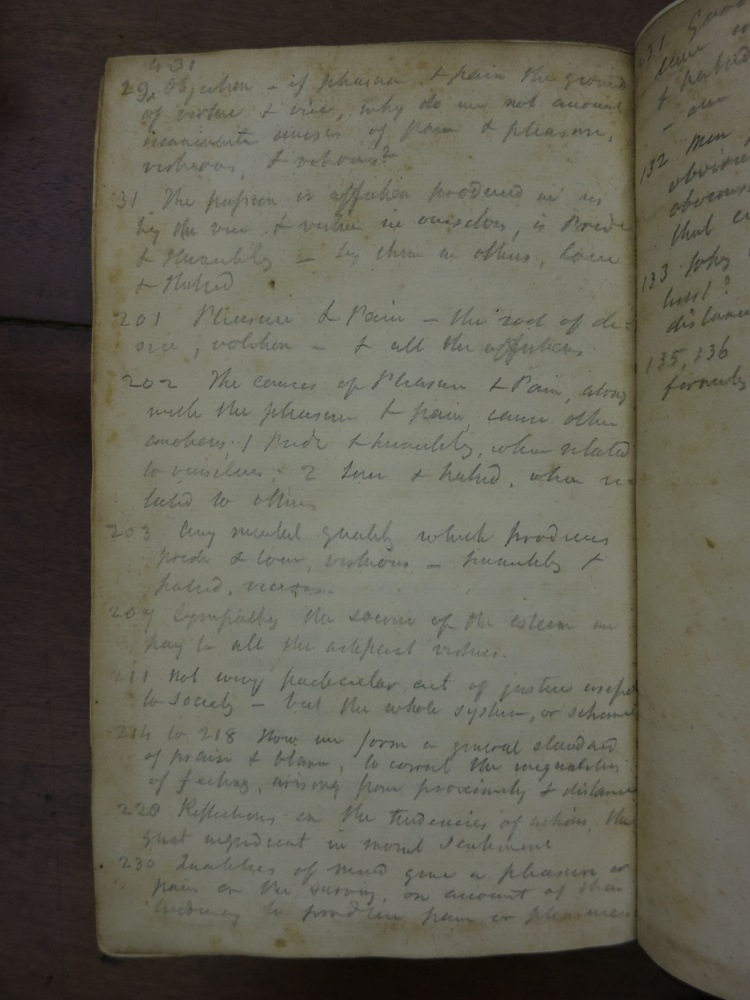 29. Objection - if pleasure & pain the ground
of virtue & vice, why do we not account
inanimate causes of pain & pleasure,
virtuous, & vitious?
31 The passion or affection produced in us
by the vice & virtue in ourselves, is Pride
& Humility - by them in others, Love
& Hatred
201 Pleasure & Pain - the root of de-
sire, volition - & all the affections
202 The causes of Pleasure & Pain, along
with the pleasure & pain, cause other
emotions. 1 Pride & humility, when related
to ourselves; 2 Love & hatred, when re-
lated to others
203 Any mental quality which produces
pride & love, virtuous - humility &
hatred, vicious.
204 Sympathy the source of the esteem we
pay to all the artificial virtues.
211 Not every particular act of justice useful
to society - but the whole system, or scheme
214 to 218 How we form a general standard
of praise & blame, to correct the inequalities
of feeling, arising from proximity & distance
220 Reflections on the tendencies of actions, the
great ingredient in moral sentiment
230 Qualities of mind give a pleasure or
pain on the survey, on account of their
tendency to produce pain or pleasure.
231
132 Men
obvious
that
133 Why
less?
distance
135, 136
formerly